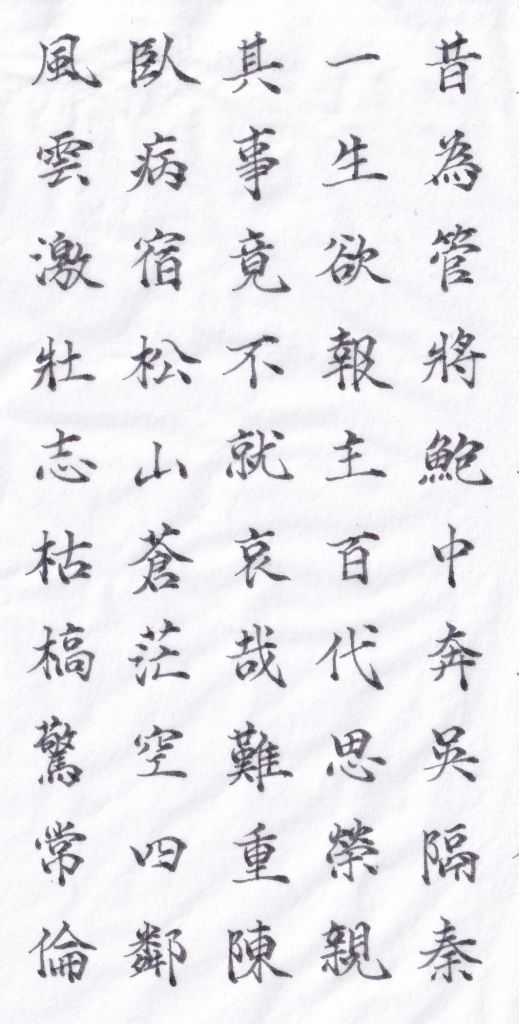 昔為管將鮑中奔吳隔秦
一生欲報主百代思榮親
其事竟不就哀哉難重陳
臥病宿松山蒼茫空四鄰
風雲激壯志枯槁驚常倫